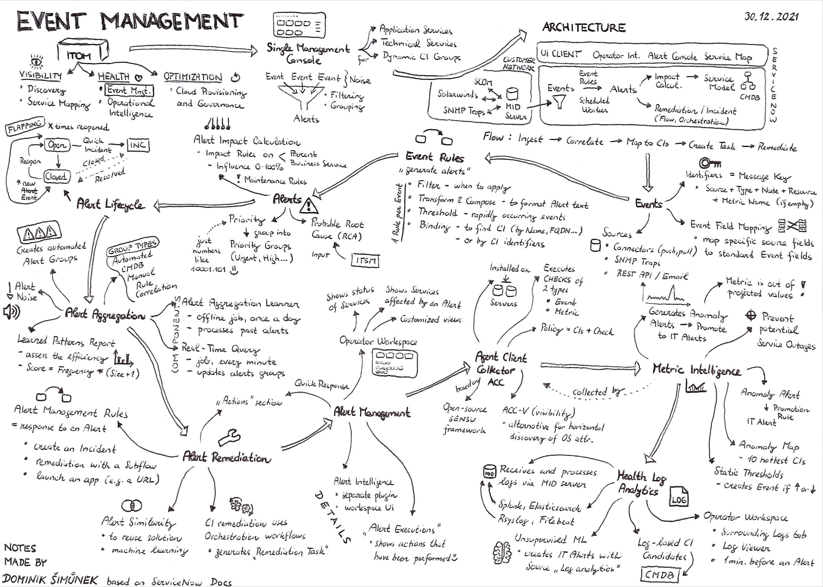 EVENT MANAGEMENT
30.12.2021
ITOM
VISIBILITY
• Discovery
• Service Mapping
HEALTH
Event Mngt.
• Operational
Intelligence
OPTIMIZATION
• Cloud Provisioning
and Governance
Single Management
Console
for
• Application Services
• Technical Services
• Dynamic CI Groups
Event Event Event } Noise
• Filtering
• Grouping
Alerts
ARCHITECTURE
UI CLIENT Operator Int. Alert Console Service Map
SERVICENOW
CUSTOMER
NETWORK
SCOM
Solarwinds
SNMP Traps
MID
SERVER
Events
Event
Rules
Scheduled
Worker
Alerts
Impact
Calcul.
Service
Model
CMDB
Remediation / Incident
(Flow, Orchestration)
Flow: Ingest → Correlate → Map to CIs → Create Task → Remediate
FLAPPING
X times reopened
Open
Quick
Incident
INC
Reopen
Closed
Closed
Resolved
* new
Alert
Event
Alert Lifecycle
Alert Impact Calculation
• Impact Rules on
Parent
Business Service
- Influence 0-100%
! Maintenance Rules
Alerts
Priority
group into
Priority Groups
(Urgent, High...)
just
numbers
like
10001.101
Probable Root
Cause (RCA)
Input
ITSM
Event Rules
"generate alerts"
1 Rule per Event
• Filter - when to apply
• Transform & Compose - to format Alert text
• Threshold - rapidly occurring events
• Binding - to find CI (by Name, FQDN...)
- or by CI identifiers
Events
Identifiers = Message Key
• Source + Type + Node + Resource
+ Metric Name (if empty)
Event Field Mapping
• map specific source fields
to standard Event fields
Sources
• Connectors (push, pull)
• SNMP Traps
• REST API / Email
Creates automated
Alert Groups
GROUP TYPES
Automated
CMDB
Manual
Rule
Correlation
↓ Alert
Noise
Alert Aggregation
COMPONENTS
Alert Aggregation Learner
- offline job, once a day
- processes past alerts
Real-Time Query
- job, every minute
- updates alerts groups
Learned Patterns Report
- assess the efficiency
- Score = Frequency * (Size + 1)
Shows status
of Services
Shows Services
affected by an Alert
Customized views
Operator Workspace
Quick Response
"Actions" section
Alert Management
Alert Intelligence
• separate plugin
• workspace UI
DETAILS
"Alert Executions"
• shows actions that
have been performed
Installed on
Servers
Executes
CHECKS of
2 types
• Event
• Metric
Policy = CIs + Check
Agent Client
Collector
ACC
based on
Open-source
SENSU
framework
ACC-V (visibility)
• alternative for horizontal
discovery of OS attr.
collected by
Metric is out of
projected values
Generates Anomaly
Alerts → Promote
to IT Alerts
Prevent
potential
Service Outages
Metric Intelligence
Anomaly Alert
↓ Promotion
Rule
IT Alert
Anomaly Map
- 10 hottest CIs
Static Thresholds
- Creates Event if ↑ or ↓
Alert Management Rules
= response to an Alert
• create an Incident
• remediation with a Subflow
• launch an app (e.g. a URL)
Alert Remediation
Alert Similarity
• to reuse solution
• machine learning
CI remediation uses
Orchestration workflows
• generates "Remediation Task"
Receives and processes
logs via MID server
Splunk, Elasticsearch
Rsyslog, Filebeat
Unsupervised ML
• creates IT Alerts with
Source "Log analytics"
Health Log
Analytics
LOG
Log-based CI
Candidates
CMDB
Operator Workspace
• Surrounding Logs tab
• Log Viewer
• 1 min. before an Alert
NOTES
MADE BY
DOMINIK ŠIMŮNEK based on ServiceNow Docs